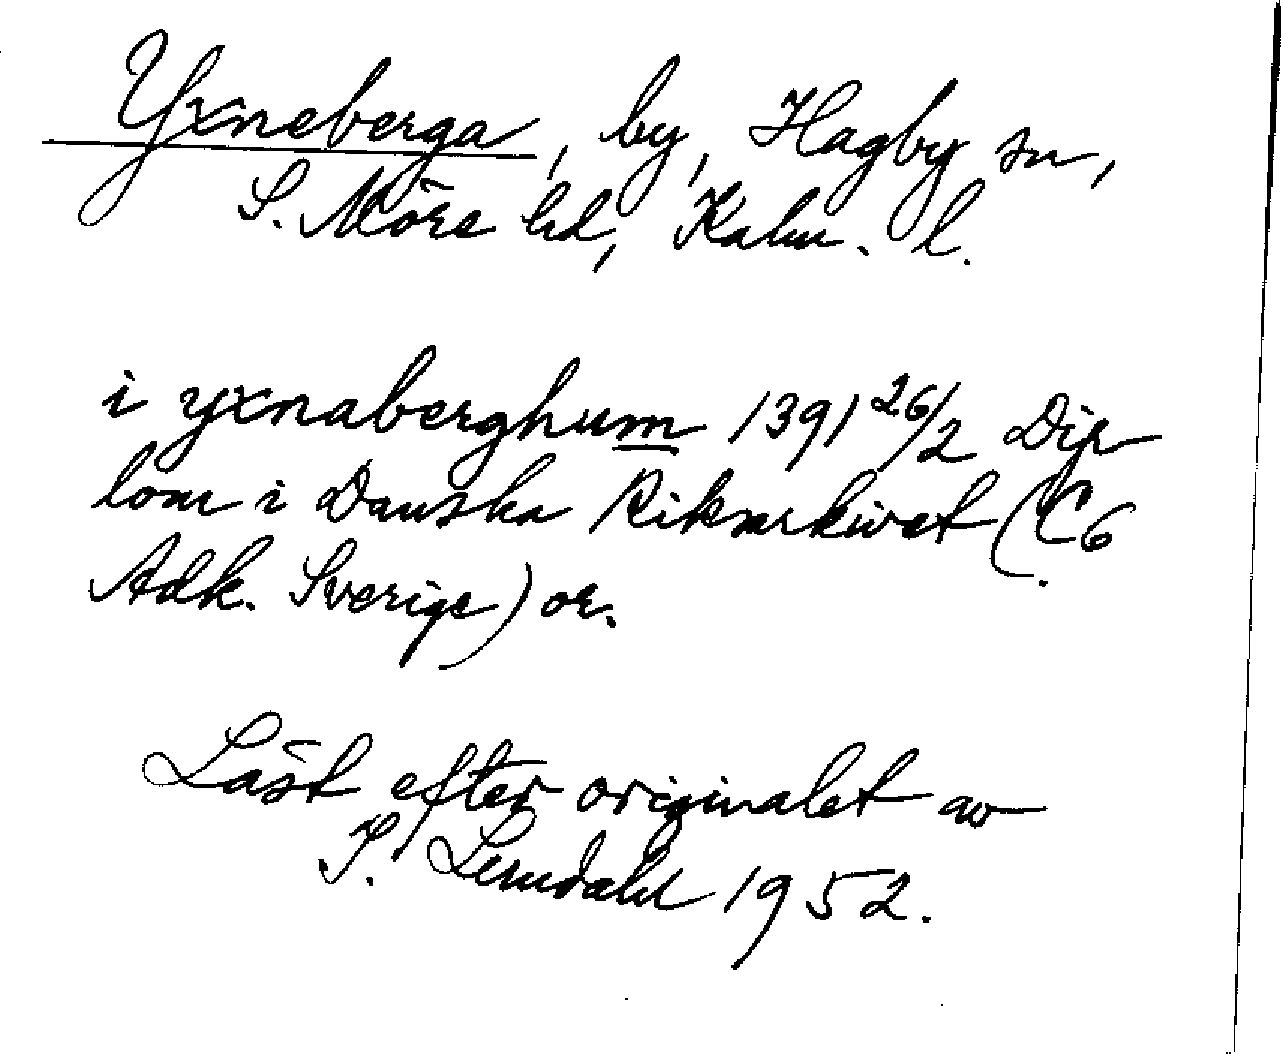 Yxneberga, by, Hagby sn,
S. Möre hd, Kalm. l.
i yxnaberghum 1391 26/2 Dip-
lom i Danska Riksarkivet (C6
Adk. Sverige) or.
Läst efter originalet av
I. Lerndahl 1952.